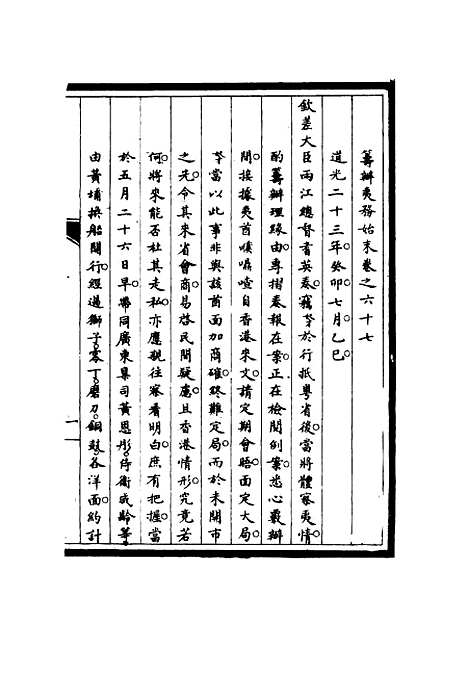 籌辦夷務始末卷之六十七
道光二十三年癸卯七月乙巳
欽差大臣兩江總督耆英奏竊等於行抵粵省後當將體察夷情
酌籌辦理緣由專摺奏報在案正在檢閱例案悉心覈辦
間接據夷酋噗嚆喳自香港來文請定期會晤面定大局
等當以此事非與該酋面加商確終難定局而於未開市
之先令其來省會商易啓民間疑慮且香港情形究竟若
何將來能否杜其走私亦應親往察看明白庶有把握當
於五月二十六日早帶同廣東臬司黃恩彤侍衛咸齡等
由黃埔換船開行經過獅子零丁磨刀銅鼓各洋面約計